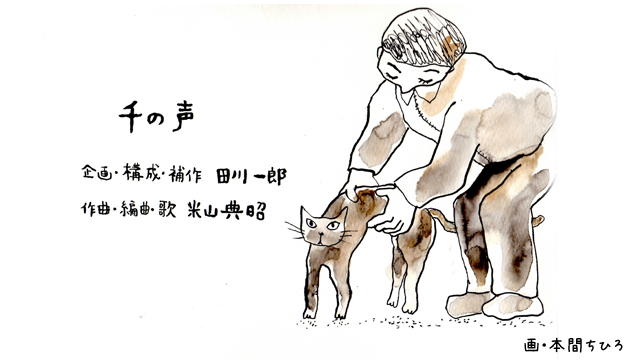 千の声
企画・構成・補作 田川一郎
作曲・編曲・歌 米山典昭
画・本間ちひろ